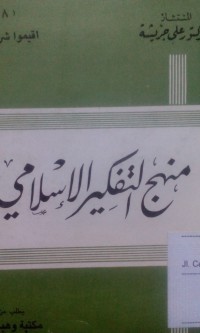 المستشار
دكتور علي جريشة
أقيموا شر
منهج التفكير الإسلامي
يطلب من
مكتبة وهب
Jl. C